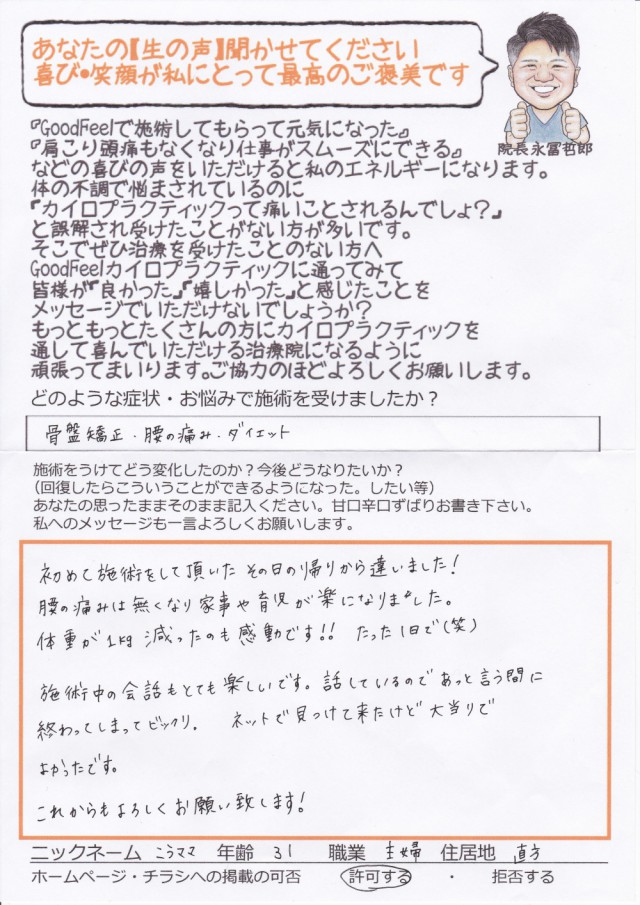 あなたの【生の声】聞かせてください
喜び•笑顔が私にとって最高のご褒美です
院長永冨哲郎
『GoodFeelで施術してもらって元気になった』
『肩こり頭痛もなくなり仕事がスムーズにできる』
などの喜びの声をいただけると私のエネルギーになります。
体の不調で悩まされているのに
「カイロプラクティックって痛いことされるんでしょ？」
と誤解され受けたことがない方が多いです。
そこでぜひ治療を受けたことのない方へ
GoodFeelカイロプラクティックに通ってみて
皆様が「良かった」「嬉しかった」と感じたことを
メッセージでいただけないでしょうか？
もっともっとたくさんの方にカイロプラクティックを
通して喜んでいただける治療院になるように
頑張ってまいります。ご協力のほどよろしくお願いします。
どのような症状・お悩みで施術を受けましたか？
骨盤矯正・腰の痛み・ダイエット
施術をうけてどう変化したのか？今後どうなりたいか？
（回復したらこういうことができるようになった。したい等）
あなたの思ったままそのまま記入ください。甘口辛口ずばりお書き下さい。
私へのメッセージも一言よろしくお願いします。
初めて施術をして頂いたその日の帰りから違いました!
腰の痛みは無くなり家事や育児が楽になりました。
体重が1kg減ったのも感動です!! たった1日で(笑)
施術中の会話もとても楽しいです。話しているのであっと言う間に
終わってしまってビックリ。 ネットで見つけて来たけど大当りで
よかったです。
これからもよろしくお願い致します!
ニックネーム こうママ 年齢 31 職業 主婦 住居地 直方
ホームページ・チラシへの掲載の可否 許可する ・ 拒否する